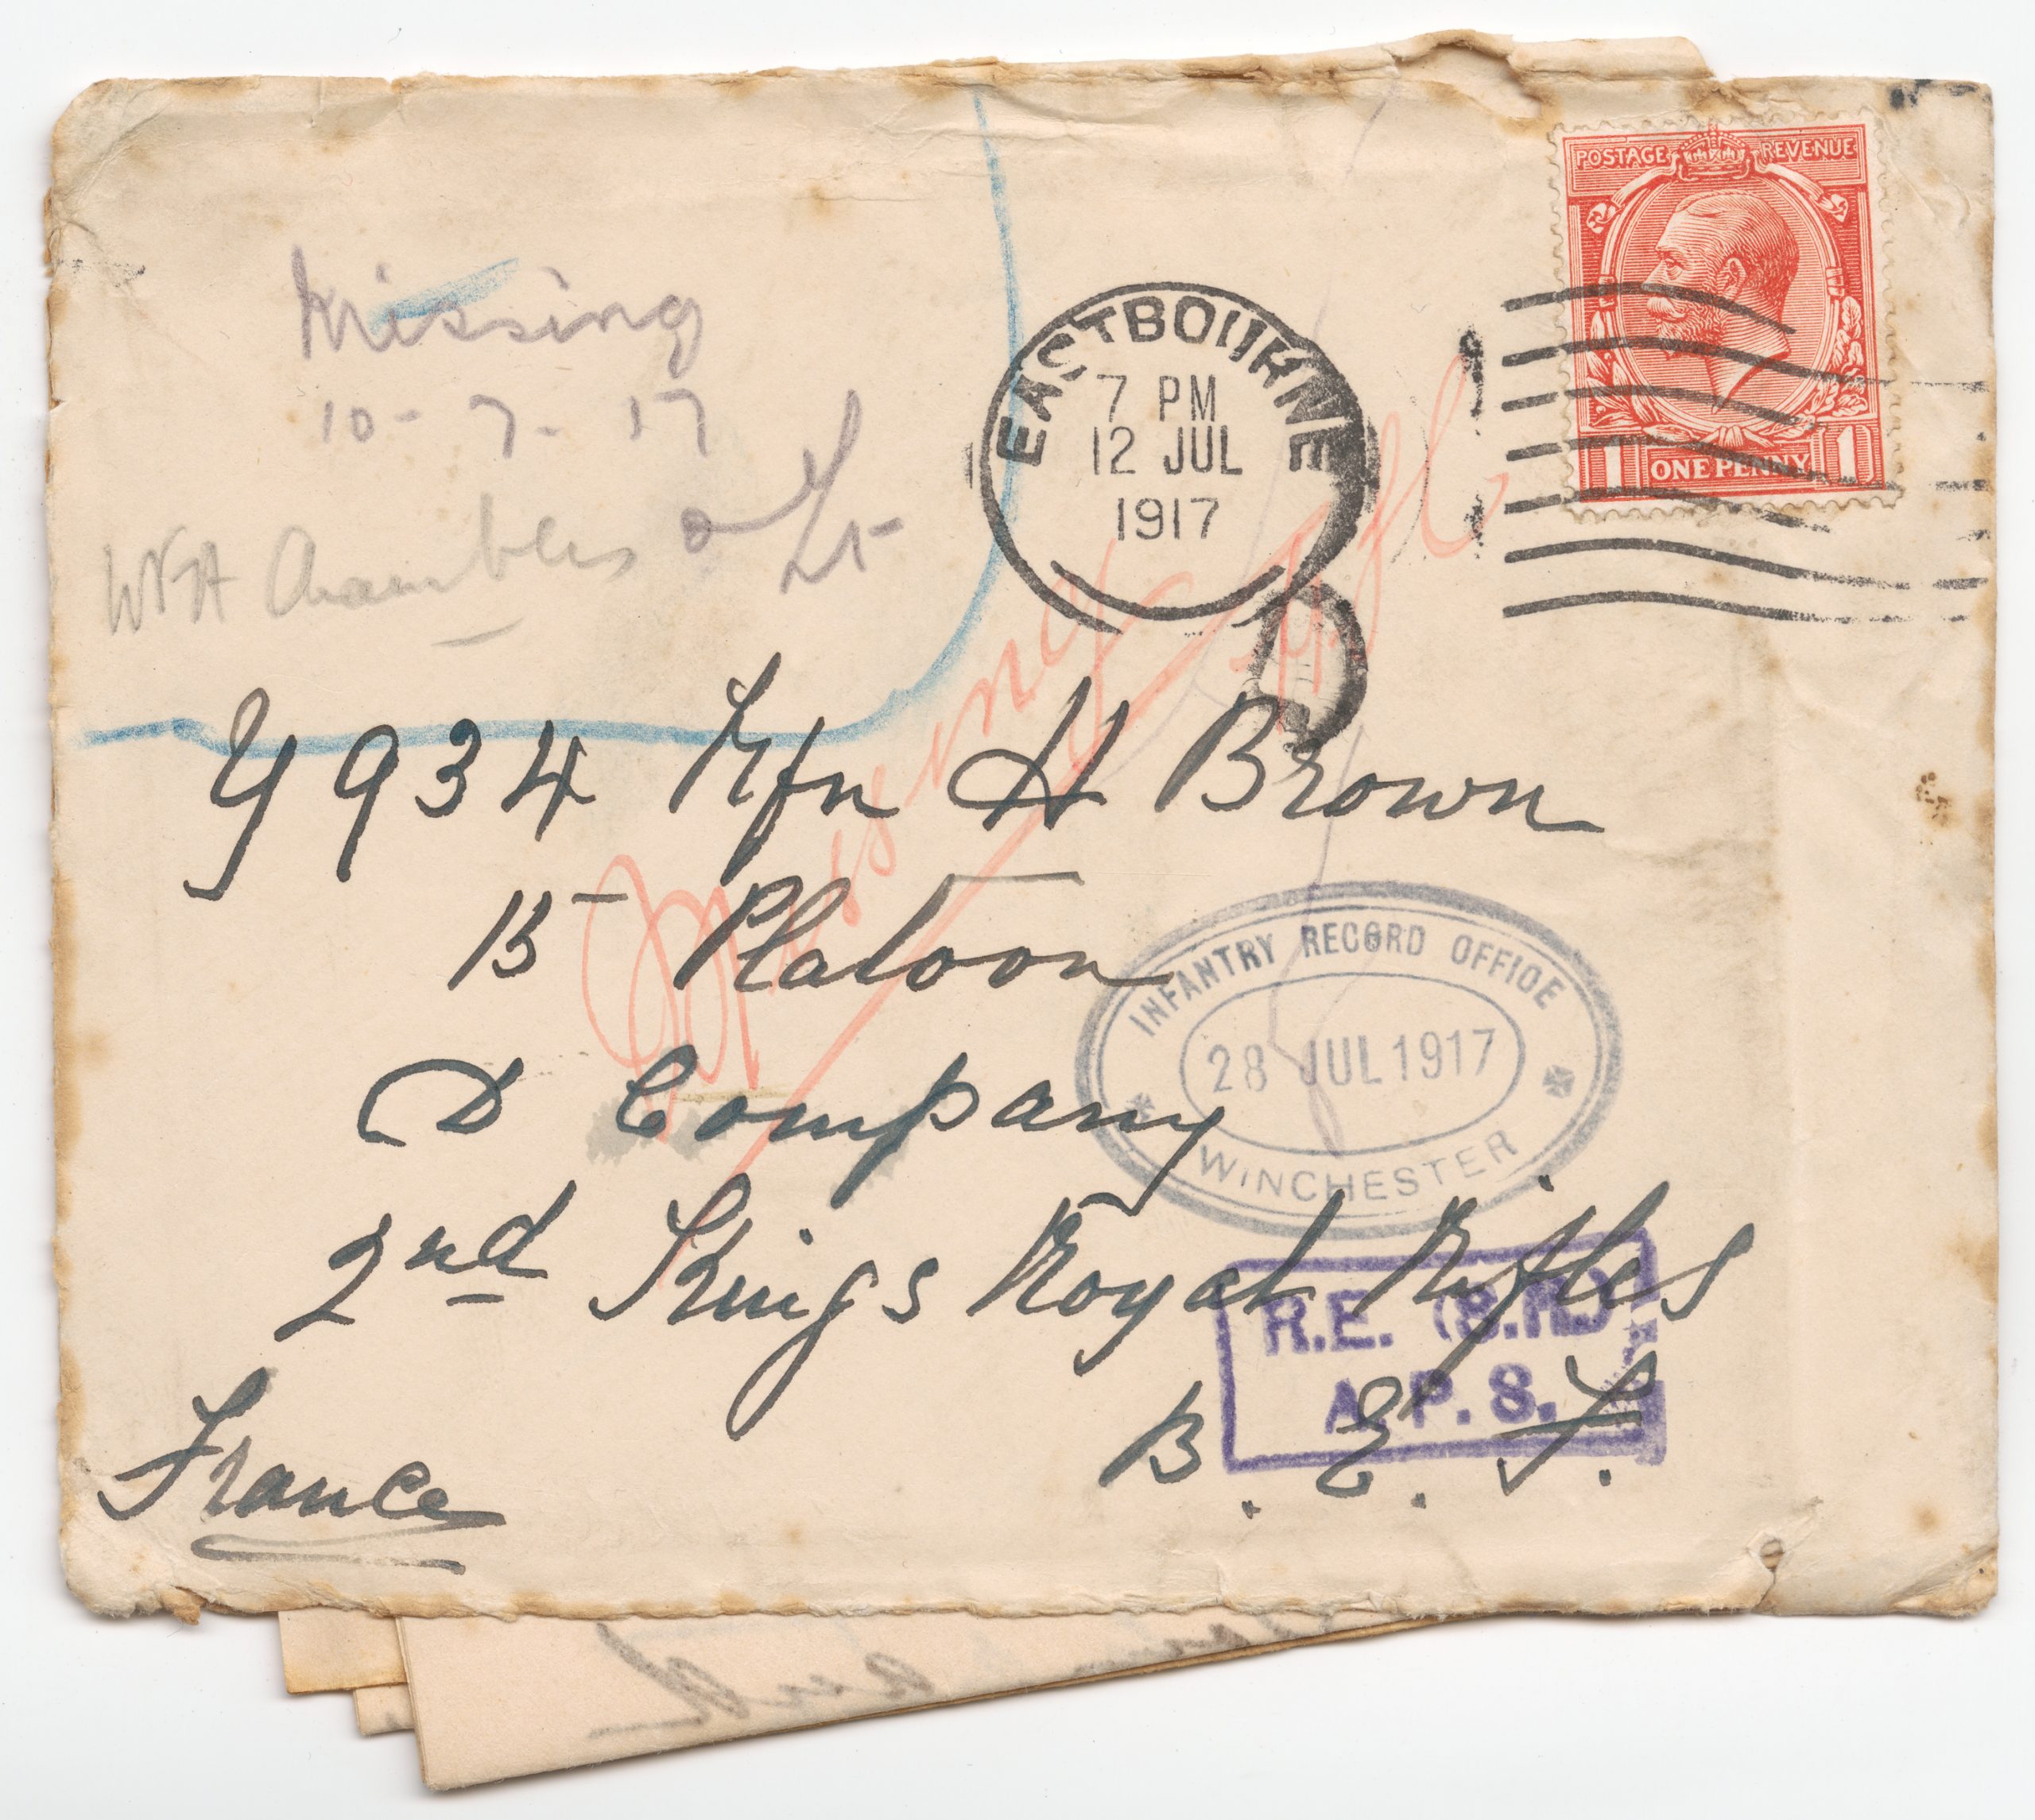 POSTAGE REVENUE
1 ONE PENNY 1
EASTBOURNE
7 PM
12 JUL
1917
Missing
10-7-17
Chambers Lt
Y 934 Rfn H Brown
Platoon
D Company
INFANTRY RECORD OFFICE
28 JUL 1917
WINCHESTER
2nd Kings Royal Rifles
R.E.
A.P.S.
B.E.F.
France